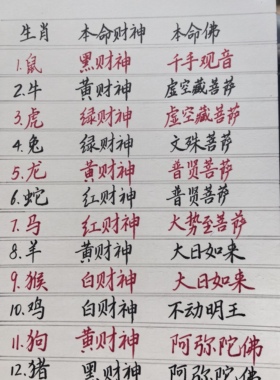 生肖 本命财神 本命佛
1.鼠 黑财神 千手观音
2.牛 黄财神 虚空藏菩萨
3.虎 绿财神 虚空藏菩萨
4.兔 绿财神 文殊菩萨
5.龙 黄财神 普贤菩萨
6.蛇 红财神 普贤菩萨
7.马 红财神 大势至菩萨
8.羊 黄财神 大日如来
9.猴 白财神 大日如来
10.鸡 白财神 不动明王
11.狗 黄财神 阿弥陀佛
12.猪 黑财神 阿弥陀佛